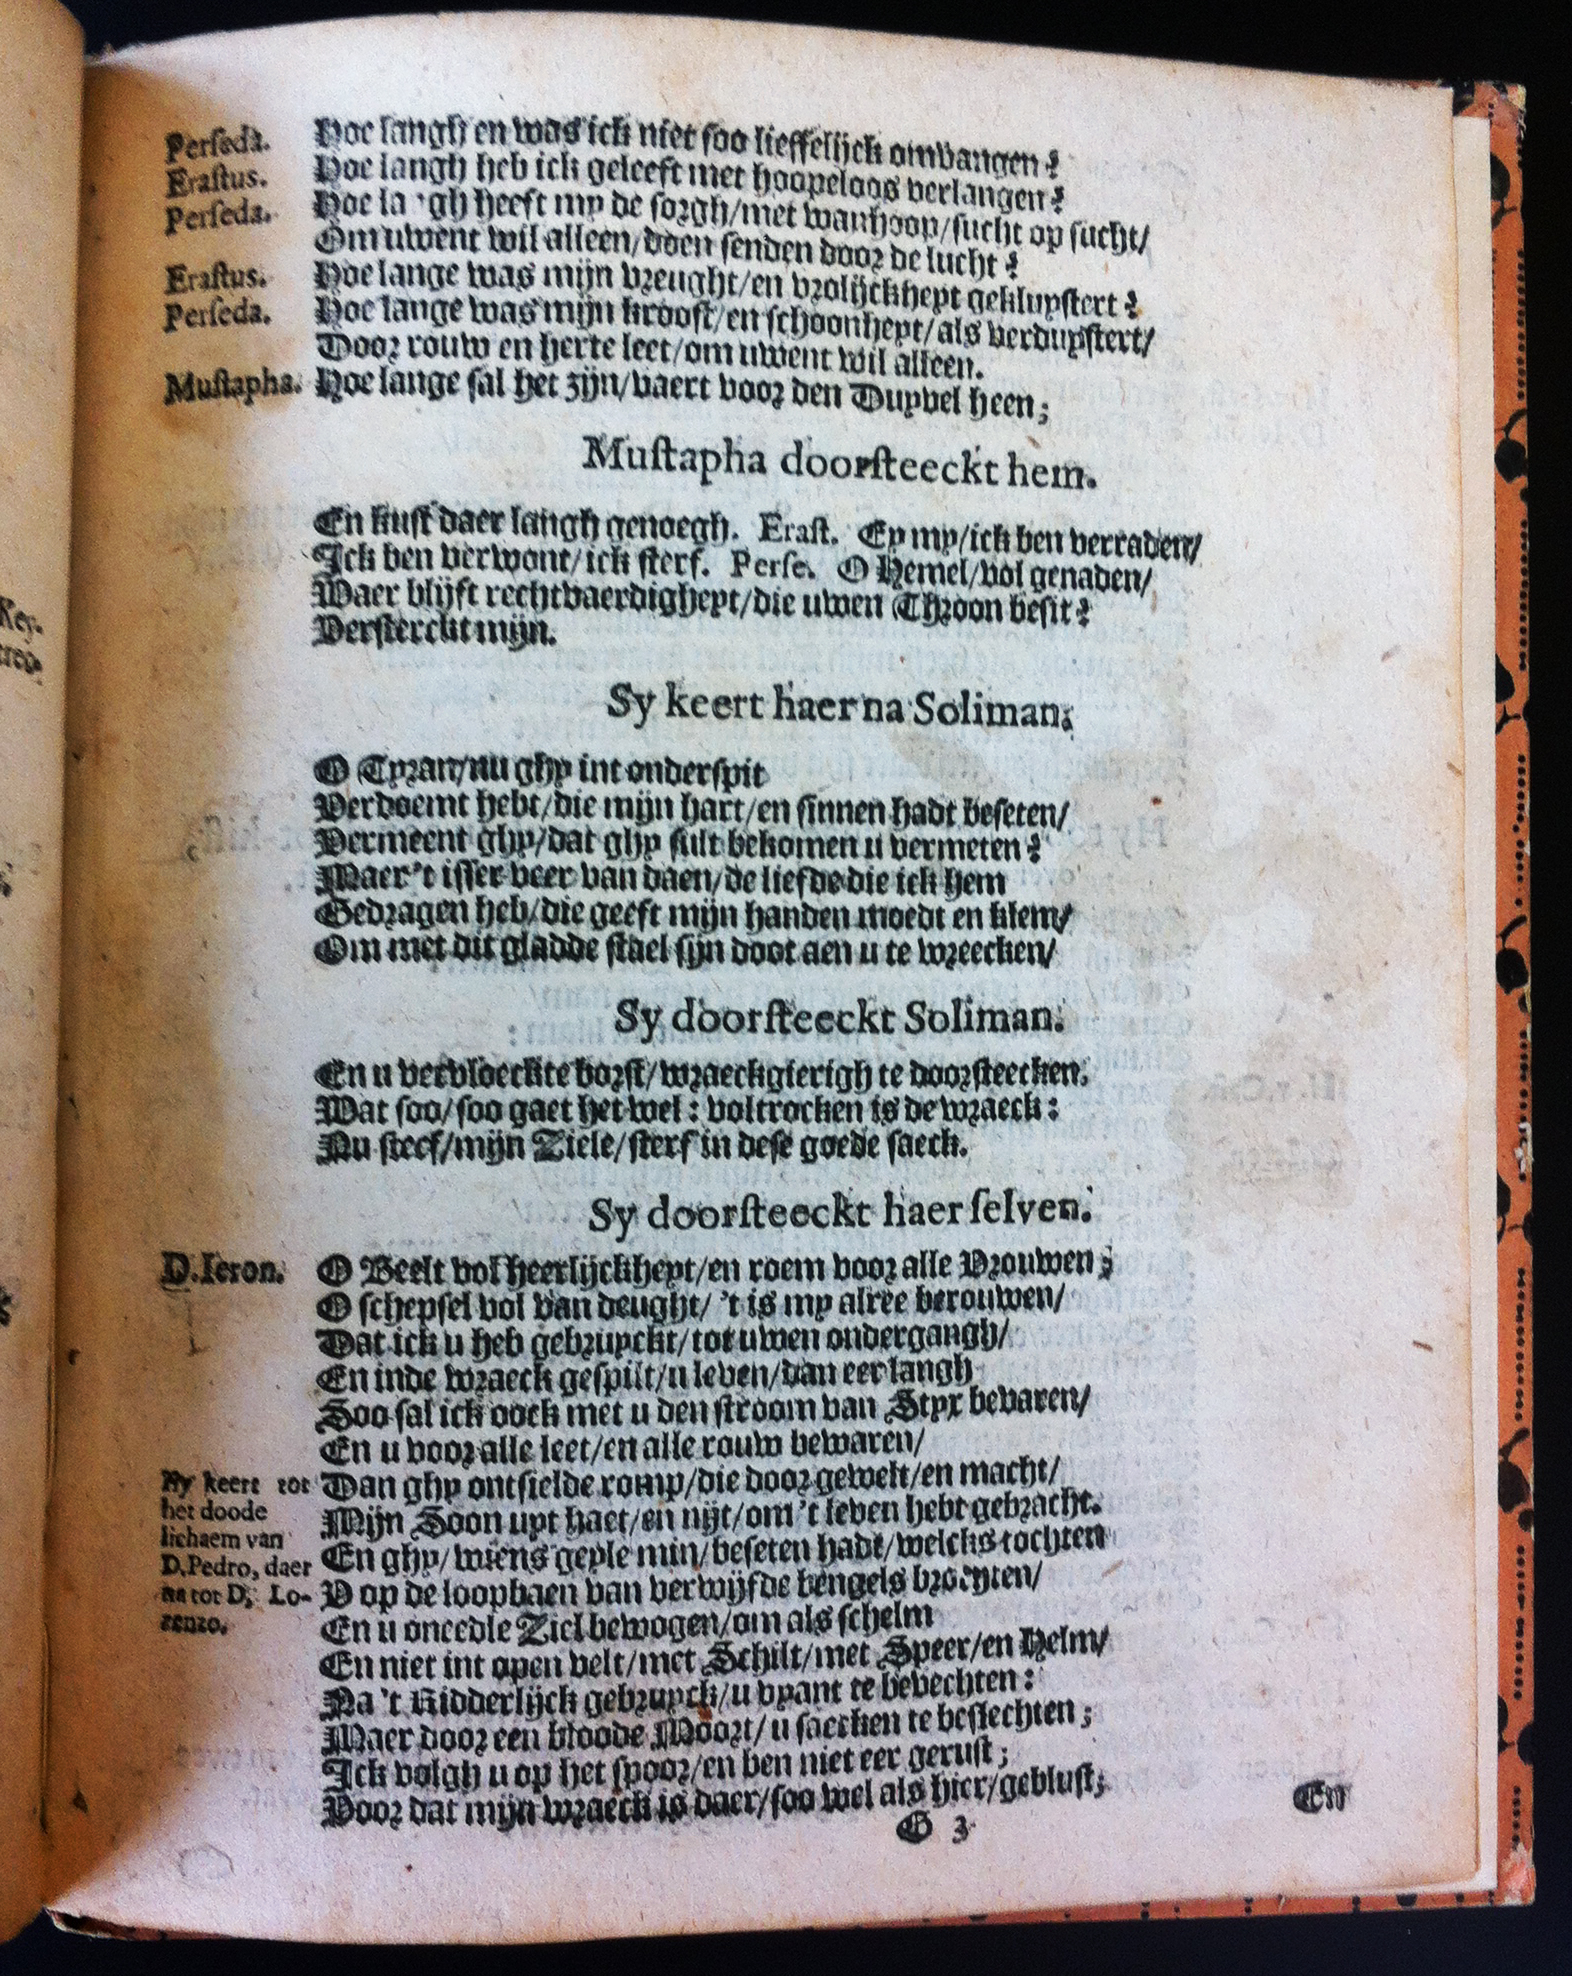 Perseda. Hoe langh en was ick niet soo lieffelijck omvangen?
Erastus. Hoe langh heb ick geleeft met hoopeloos verlangen?
Perseda. Hoe la gh heeft my de sorgh/met wanhoop/sucht op sucht/
Om uwent wil alleen/doen senden door de lucht?
Erastus. Hoe lange was mijn vreught/en vrolijckheyt gekluystert?
Perseda. Hoe lange was mijn kroost/en schoonheyt/als verduystert/
Door rouw en herte leet/om uwent wil alleen.
Mustapha. Hoe lange sal het zijn/vaert voor den Duyvel heen;
Mustapha doorsteeckt hem.
En kust daer langh genoegh. Erast. Ey my/ick ben verraden/
Ick ben verwont/ick sterf. Perse. O Hemel/vol genaden/
Waer blijft rechtvaerdigheyt/die uwen Throon besit?
Versterckt mijn.
Sy keert haer na Soliman;
O Tyran/nu ghy int onderspit
Verdoemt hebt/die mijn hart/en sinnen hadt beseten/
Vermeent ghy/dat ghy sult bekomen u vermeten?
Maer 't isser veer van daen/de liefde die ick hem
Gedragen heb/die geeft mijn handen moedt en klem/
Om met dit gladde stael sijn doot aen u te wreecken/
Sy doorsteeckt Soliman.
En u vervloeckte borst/wraeckgierigh te doorsteecken.
Wat soo/soo gaet het wel: voltrocken is de wraeck:
Nu sterf/mijn Ziele/sterf in dese goede saeck.
Sy doorsteeckt haer selven.
D.Ieron. O Beelt vol heerlijckheyt/en roem voor alle Vrouwen;
O schepsel vol van deught/ 't is my alree berouwen/
Dat ick u heb gebruyckt/tot uwen ondergangh/
En inde wraeck gespilt/u leven/dan eer langh
Soo sal ick oock met u den stroom van Styx bevaren/
En u voor alle leet/en alle rouw bewaren/
Hy keert tot Dan ghy ontsielde romp/die door gewelt/en macht/
het doode Mijn Soon uyt haet/en nijt/om 't leven hebt gebracht.
lichaem van En ghy/wiens geyle min/beseten hadt/welcks tochten
D.Pedro, daer V op de loopbaen van verwijfde bengels brochten/
na tot D. Lo- En u oneedle Ziel bewogen/om als schelm
renzo. En niet int open velt/met Schilt/met Speer/en Helm/
Na 't Ridderlijck gebruyck/u vyant te bevechten:
Maer door een bloode Moort/u saecken te beslechten;
Ick volgh u op het spoor/en ben niet eer gerust;
Voor dat mijn wraeck is daer/soo wel als hier/geblust;
G 3 En